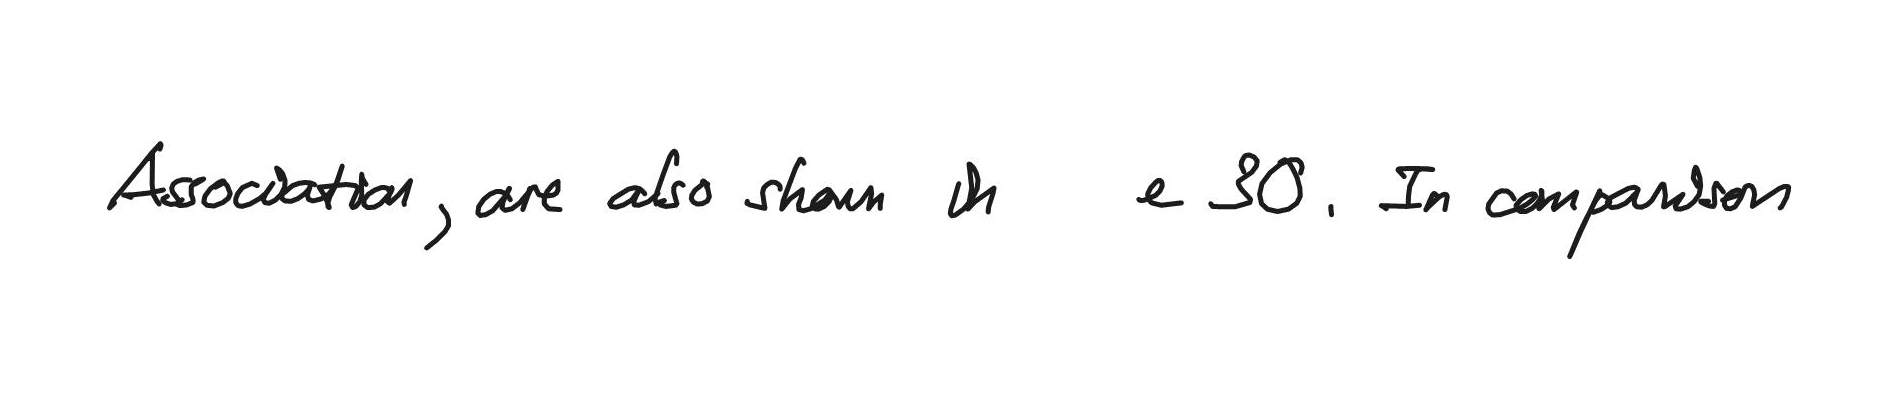 Association, are also shown in e 30. In comparison